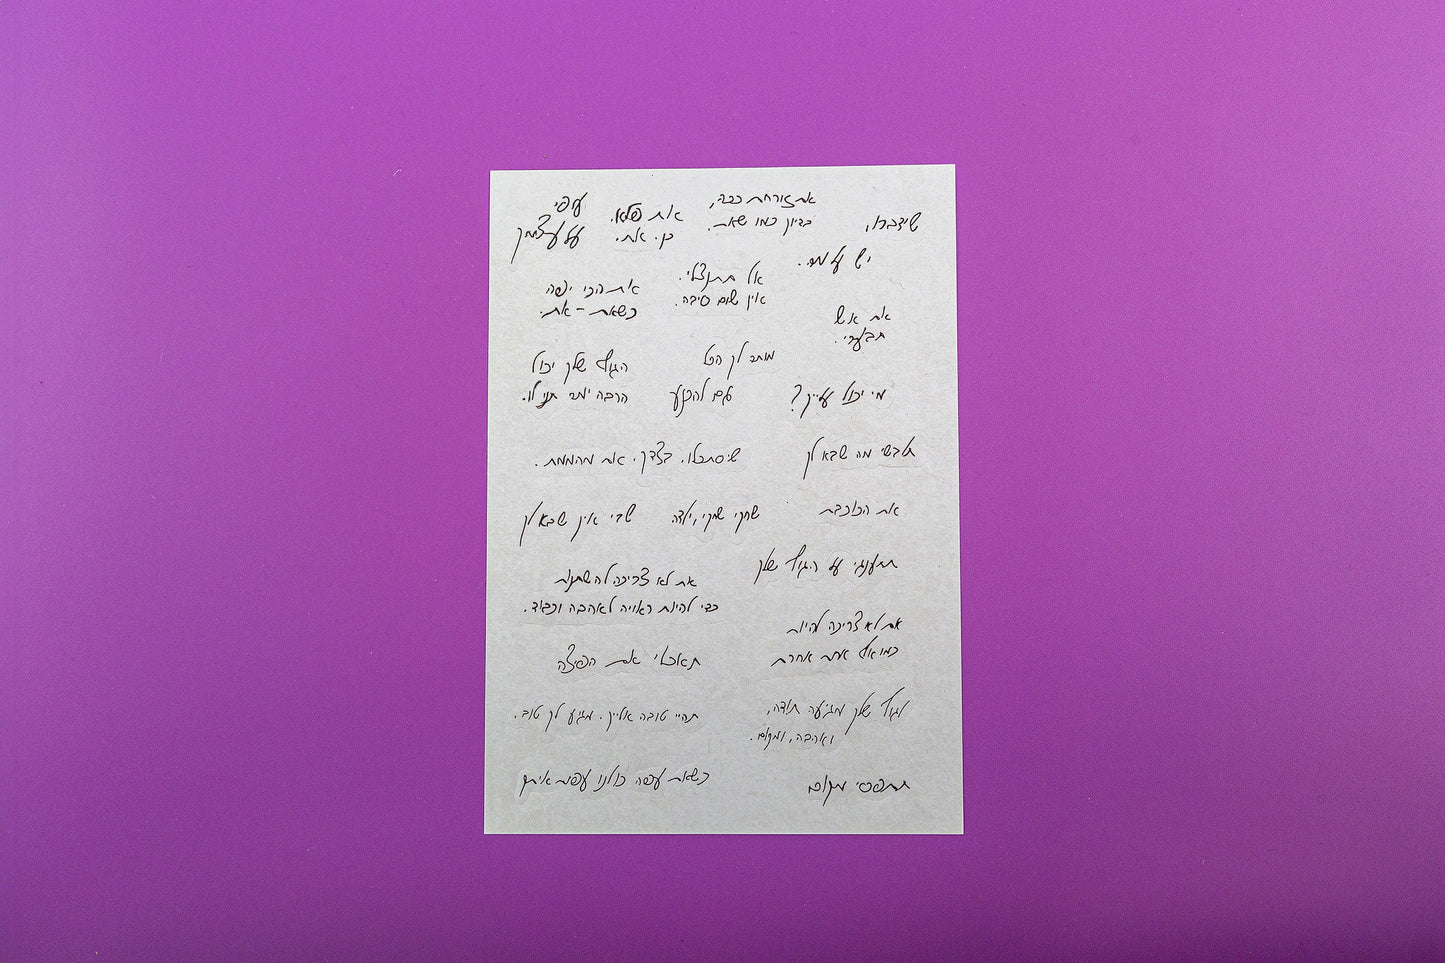 שידברו,
יש על מה.
את זורחת ככה,
בדיוק כמו שאת.
את פלא.
כן. את.
עופי
על עצמך
אל תתנצלי.
אין שום סיבה.
את הכי יפה
כשאת – את.
את אש
תבערי.
מותר לך הכל
גם להכנע
הגוף שלך יכול
הרבה יותר תני לו.
מי יכול עלייך?
תלבשי מה שבא לך
שיסתכלו. בצדק. את מהממת.
את הכוכבת
שחקי שחקי, ילדה
שבי איך שבא לך
תתענגי על הגוף שלך
את לא צריכה להשתנות
כדי להיות ראויה לאהבה וכבוד.
את לא צריכה להיות
כמו אף אחת אחרת
תאכלי את הפיצה
לגוף שלך מגיעה תודה,
ואהבה, ומקום.
תהיי טובה אלייך. מגיע לך טוב.
תתפסי מקום
כשאת עפה כולנו עפות איתך